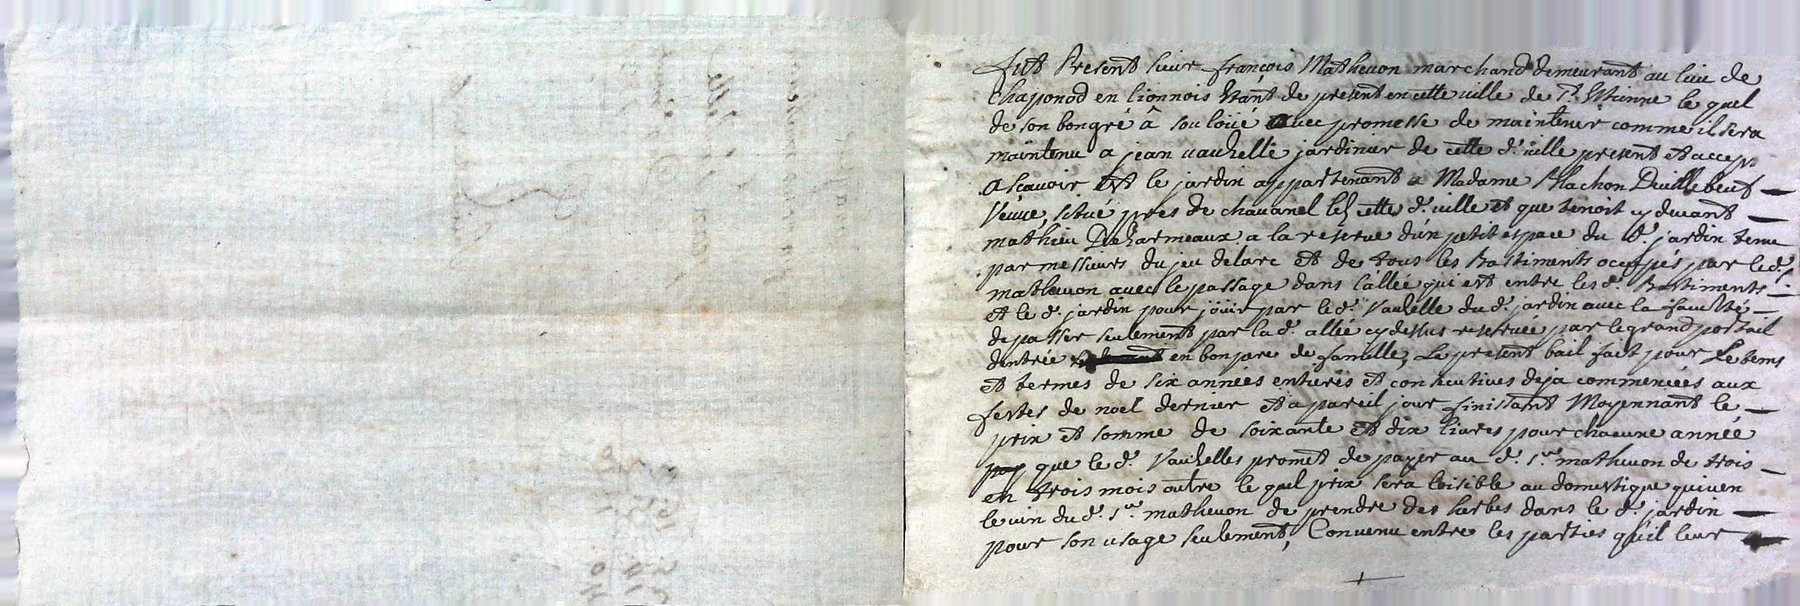 fut Present sieur françois Mathevon marchand demeurant au lieu de
Chaponod en lionnois Etant de present en cette ville de St. Etienne le quel
de son bongré à soulöüé avec promesse de maintenir comme il sera
maintenu a jean vauzelle jardinier de cette d. ville present et accep.
a sçavoir Est le jardin appartenant a Madame Blachon Deville beuf
Veuve, situé près de chavanel lez cette d. ville et que tenoit cy devant
mathieu Dezarmeaux a la reserve d'un petit espace du d. jardin tenu
par messieurs du jeu de larc et de tous les Bastiments ocupés par le d.
mathevon avec le passage dans l'allée qui est entre les d. Bastiments
et le d. jardin pour joüir par le d. Vauzelle du d. jardin avec la faculté
de passer seulement par la d. allée cy dessus reservée par le grand portail
dentrée en bon pere de famille, Le present bail fait pour Le tems
et termes de six années entieres et consecutives deja commencées aux
festes de noel dernier et a pareil jour finissant Moyennant le
prix et somme de soixante et dix livres pour chacune année
que le d. Vauzelles promet de payer au d. sr. mathevon de trois
en trois mois outre le quel prix sera loisible au domestique qui ven
le vin du d. sr. mathevon de prendre des herbes dans le d. jardin
pour son usage seulement, Convenu entre les parties qu'il leur